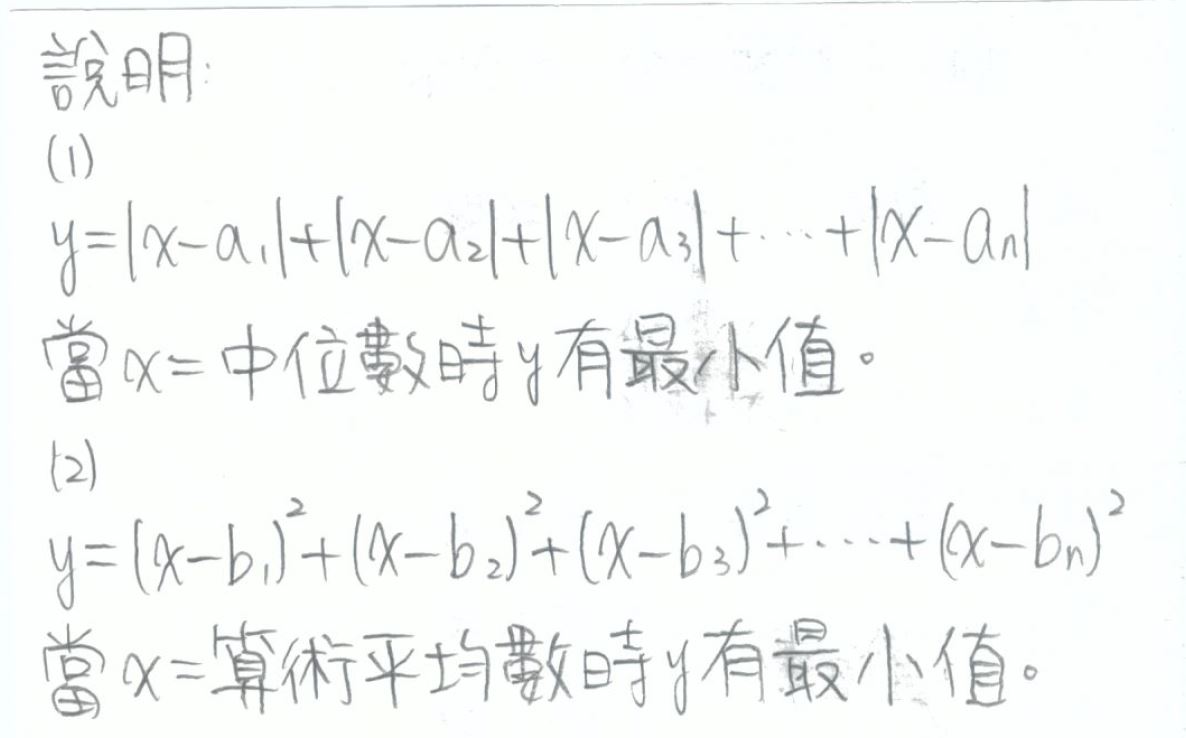 說明:
(1)
y=|x-a₁|+|x-a₂|+|x-a₃|+⋯+|x-aₙ|
當x=中位數時y有最小值。
(2)
y=(x-b₁)²+(x-b₂)²+(x-b₃)²+⋯+(x-bₙ)²
當x=算術平均數時y有最小值。